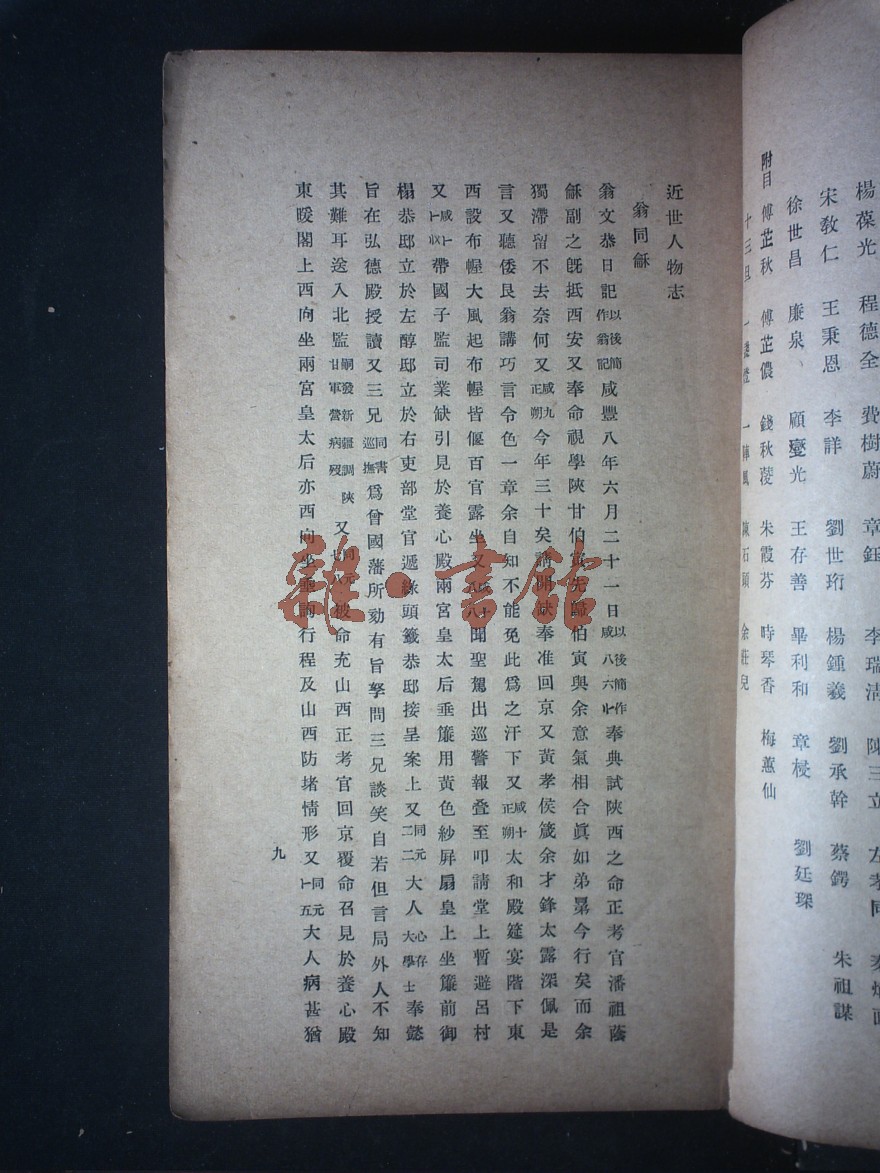 楊葆光 程德全 費樹蔚 章鈺 李瑞清 陳三立 左孝同
宋敎仁 王秉恩 李詳 劉世珩 楊鍾羲 劉承幹 蔡鍔 朱祖謀
徐世昌 廉泉 顧鼇光 王存善 畢利和 章梫 劉廷琛
附目 傅芷秋 傅芷儂 錢秋菱 朱霞芬 時琴香 梅蕙仙
十三旦 一陣風 陳石頭 余莊兒
近世人物志
翁同龢
翁文恭日記以後簡作翁記咸豐八年六月二十一日以後簡作咸八六廿奉典試陝西之命正考官潘祖蔭
龢副之旣抵西安又奉命視學陝甘伯寅先歸伯寅與余意氣相合眞如弟晜今行矣而余
獨滯留不去奈何又咸九正朔今年三十矣請開缺奉准回京又黃孝侯箴余才鋒太露深佩是
言又聽倭艮翁講巧言令色一章余自知不能免此爲之汗下又咸十正朔太和殿筵宴階下東
西設布幄大風起布幄皆偃百官露坐又咸十八八聞聖駕出巡警報叠至叩請堂上暫避呂村
又帶國子監司業缺引見於養心殿兩宮皇太后垂簾用黃色紗屛扇皇上坐簾前御
榻恭邸立於左醇邸立於右吏部堂官遞綠頭籤恭邸接呈案上又同元二二大人心存大學士奉懿
旨在弘德殿授讀又三兄同書巡撫爲曾國藩所劾有旨拏問三兄談笑自若但言局外人不知
其難耳送入北監嗣發新疆調陝甘軍營病歿又同元七八被命充山西正考官回京覆命召見於養心殿
東暖閣上西向坐兩宮皇太后亦西向坐垂詢行程及山西防堵情形又同元十一五大人病甚猶
九
雜·書館